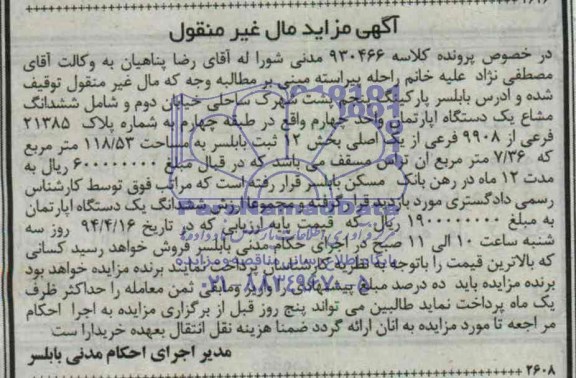 آگهی مزاید مال غیر منقول
در خصوص پرونده کلاسه ۹۳۰۴۶۶ مدنی شورا له آقای رضا پناهیان به وکالت آقای
مصطفی نژاد علیه خانم راحله پیراسته مبنی بر مطالبه وجه که مال غیر منقول توقیف
شده و ادرس بابلسر پارکینگ پشت شهرک ساحلی خیابان دوم و شامل ششدانگ
مشاع یک دستگاه اپارتمان واحد چهارم واقع در طبقه چهارم به شماره پلاک ۲۱۳۸۵
فرعی از ۹۹۰۸ فرعی از یک اصلی بخش ۱۲ ثبت بابلسر به مساحت ۱۱۸/۵۳ متر مربع
که ۷/۳۶ متر مربع ان تراس مسقف می باشد که در قبال مبلغ ۶۰۰۰۰۰۰۰۰ ریال به
مدت ۱۲ ماه در رهن بانک مسکن بابلسر قرار رفته است که مراتب فوق توسط کارشناس
رسمی دادگستری مورد بازدید قرار گرفته و مجموعا ارزش ششدانگ یک دستگاه اپارتمان
به مبلغ ۱۹۰۰۰۰۰۰۰۰ ریال که قیمت پایه ارزیابی که در تاریخ ۹۴/۴/۱۶ روز سه
شنبه ساعت ۱۰ الی ۱۱ صبح در اجرای حکام مدنی بابلسر فروش خواهد رسید کسانی
که بالاترین قیمت را باتوجه به نظریه کارشناسان پرداخت نمایند برنده مزایده خواهد بود
برنده مزایده باید ده درصد مبلغ پیشنهادی را واریز ومابقی ثمن معامله را حداکثر ظرف
یک ماه پرداخت نماید طالبین می تواند پنج روز قبل از برگزاری مزایده به اجرا احکام
مراجعه تا مورد مزایده به انان ارائه گردد ضمنا هزینه نقل انتقال بعهده خریدارا ست
مدیر اجرای احکام مدنی بابلسر
۲۶۰۸
ParsNamadData
پایگاه اطلاع رسانی مناقصه و مزایده
۰۲۱-۸۸۳۴۹۶۷۰-۵